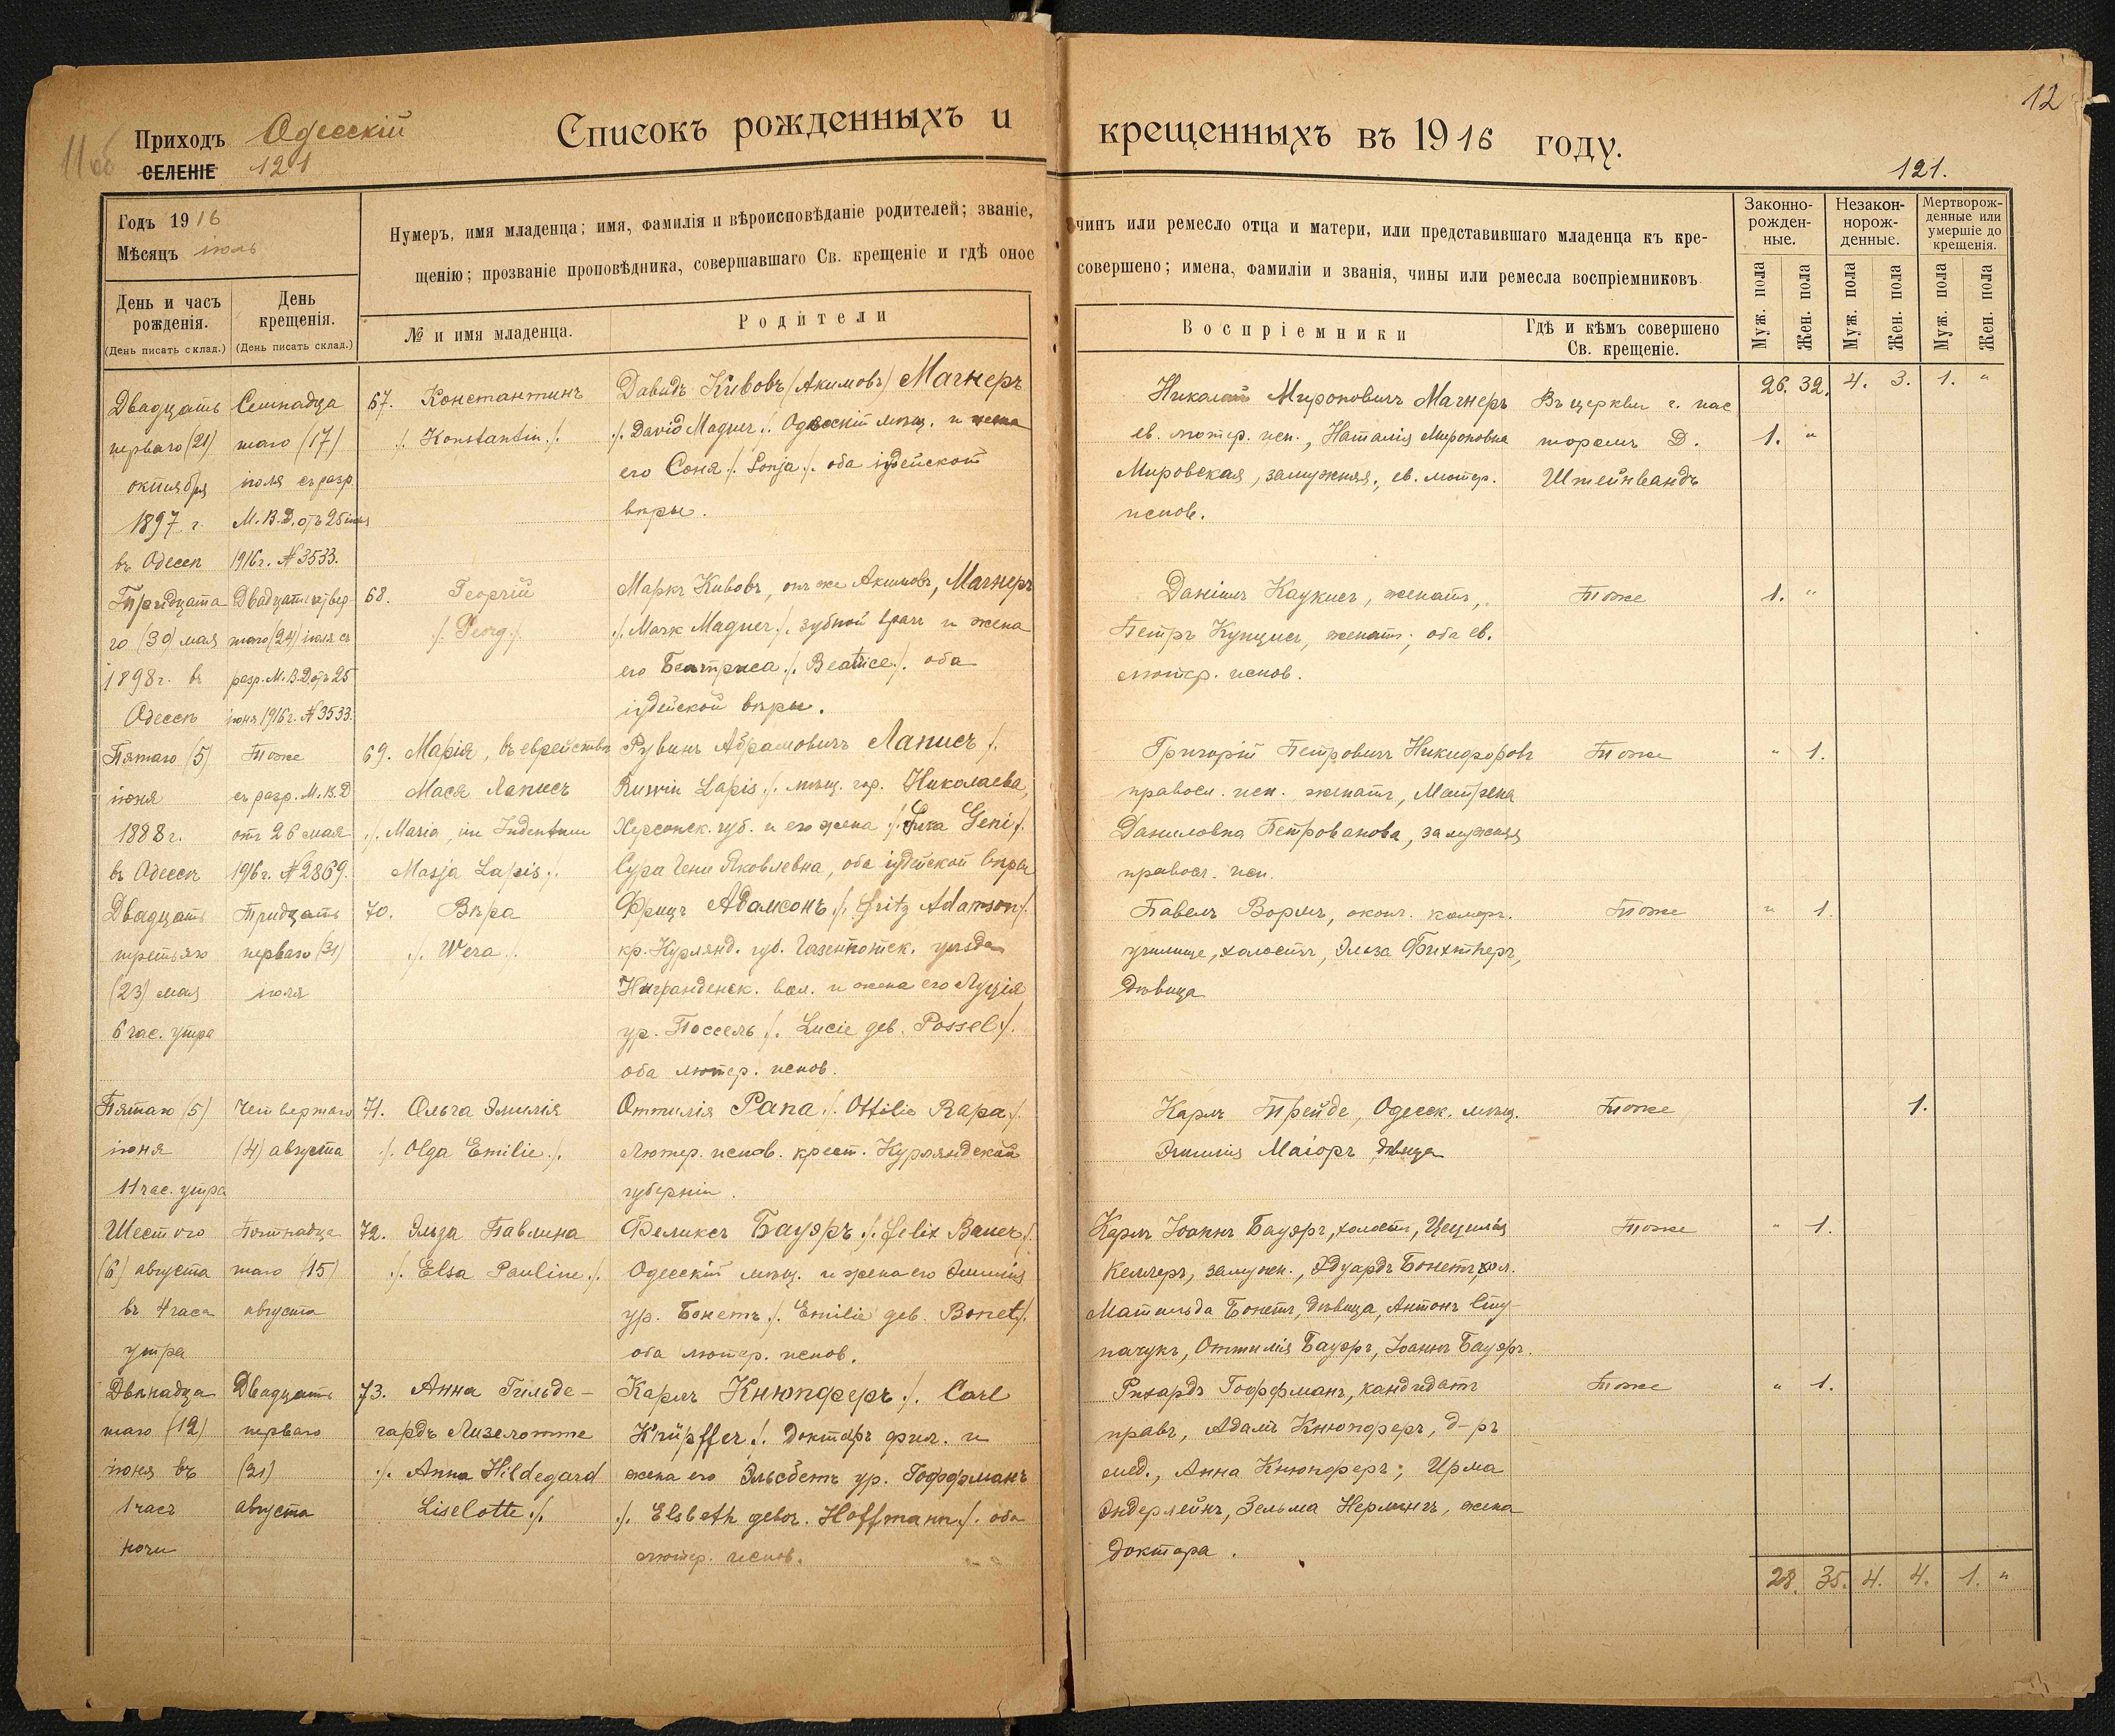 11 об
Приходъ Одесскій
СЕЛЕНІЕ 121
Списокъ рожденныхъ и крещенныхъ въ 1916 году.
12
121.
Годъ 1916
Мѣсяцъ іюль
Нумеръ, имя младенца; имя, фамилія и вѣроисповѣданіе родителей; званіе, чинъ или ремесло отца и матери, или представившаго младенца къ кре-
щенію; прозваніе проповѣдника, совершавшаго Св. крещеніе и гдѣ оное совершено; имена, фамиліи и званія, чины или ремесла воспріемниковъ
День и часъ рожденія.
(День писать склад.)
День крещенія.
(День писать склад.)
№ и имя младенца.
Родители
Воспріемники
Гдѣ и кѣмъ совершено
Св. крещеніе.
Законно-
рожден-
ные.
Незакон-
норож-
денные.
Мертворож-
денные или
умершіе до
крещенія.
Муж. пола
Жен. пола
Муж. пола
Жен. пола
Муж. пола
Жен. пола
26. 32. 4. 3. 1. "
Двадцать
перваго (21)
октября
1897 г.
въ Одессѣ
Семнадца
таго (17)
іюля съ разр.
М. В. Д. отъ 25 іюня
1916 г. № 3533.
67. Константинъ
./. Konstantin ./.
Давидъ Кивовъ (Акимовъ) Магнеръ
./. David Magner ./. Одесскій мѣщ. и жена
его Соня ./. Sonja ./. оба іудейской
вѣры.
Николай Мироновичъ Магнеръ
ев. лютер. исп., Наталія Мироновна
Мировская, замужняя, ев. лютер.
испов.
Въ церкви г. пас
торомъ Д.
Штейнвандъ
1. "
Тридцата
го (30) мая
1898 г. въ
Одессѣ
Двадцать четвер-
таго (24) іюля съ
разр. М. В. Д. отъ 25
іюня 1916 г. № 3533.
68. Георгій
./. Georg ./.
Маркъ Кивовъ, онъ же Акимовъ, Магнеръ
./. Mark Magner ./. зубной врачъ и жена
его Беатриса ./. Beatrice ./. оба
іудейской вѣры.
Даніилъ Каукисъ, женатъ,
Петръ Кунцисъ, женатъ; оба ев.
лютер. испов.
Тоже
1. "
Пятаго (5)
іюня
1888 г.
въ Одессѣ
Тоже
съ разр. М. В. Д
отъ 26 мая
1916 г. № 2869.
69. Марія, въ еврействѣ
Мася Лаписъ
./. Maria, im Judentum
Masja Lapis ./.
Рувинъ Абрамовичъ Лаписъ ./.
Ruwin Lapis ./. мѣщ. гор. Николаева,
Херсонск. губ. и его жена ./. Sura Geni ./.
Сура Гени Яковлевна, оба іудейской вѣры
Григорій Петровичъ Никифоровъ
правосл. исп. женатъ, Матрена
Даниловна Петрованова, замужняя
правосл. исп.
Тоже
" 1.
Двадцать
третьяго
(23) мая
6 час. утра
Тридцать
перваго (31)
іюля
70. Вѣра
./. Wera ./.
Фрицъ Адамсонъ ./. Fritz Adamson ./.
кр. Курлянд. губ. Газенпотск. уѣзда
Нигранденск. вол. и жена его Луція
ур. Поссель ./. Lucie geb. Possel ./.
оба лютер. испов.
Павелъ Вормъ, оконч. комерч.
училище, холостъ, Эльза Фихтнеръ,
дѣвица
Тоже
" 1.
Пятаго (5)
іюня
11 час. утра
Четвертаго
(4) августа
71. Ольга Эмилія
./. Olga Emilie ./.
Оттилія Рапа ./. Ottilie Rapa ./.
Лютер. испов. крест. Курляндской
губерніи.
Карлъ Трейде, Одесск. мѣщ.
Эмилія Маіоръ дѣвица
Тоже
1.
Шестого
(6) августа
въ 4 часа
утра
Пятнадца
таго (15)
августа
72. Эльза Павлина
./. Elsa Pauline ./.
Феликсъ Бауэръ ./. Felix Bauer ./.
Одесскій мѣщ. и жена его Эмилія
ур. Бонетъ ./. Emilie geb. Bonet ./.
оба лютер. испов.
Карлъ Іоаннъ Бауэръ, холостъ, Цецилія
Келлеръ, замужн., Эдуардъ Бонетъ, хол.
Матильда Бонетъ, дѣвица, Антонъ Сту-
пачукъ, Оттилія Бауэръ, Іоаннъ Бауэръ.
Тоже
" 1.
Двѣнадца
таго (12)
іюня въ
1 часъ
ночи
Двадцать
перваго
(21)
августа
73. Анна Гильде-
гардъ Лизелотте
./. Anna Hildegard
Liselotte ./.
Карлъ Кнюпферъ ./. Carl
Knüpffer ./. докторъ фил. и
жена его Эльсбетъ ур. Гоффманъ
./. Elsbeth gebor. Hoffmann ./. оба
лютер. испов.
Рихардъ Гоффманъ, кандидатъ
правъ, Адамъ Кнюпферъ, д-ръ
мед., Анна Кнюпферъ; Ирма
Эндерлейнъ, Зельма Нерлингъ, жена
доктора.
Тоже
" 1.
28. 35. 4. 4. 1. "